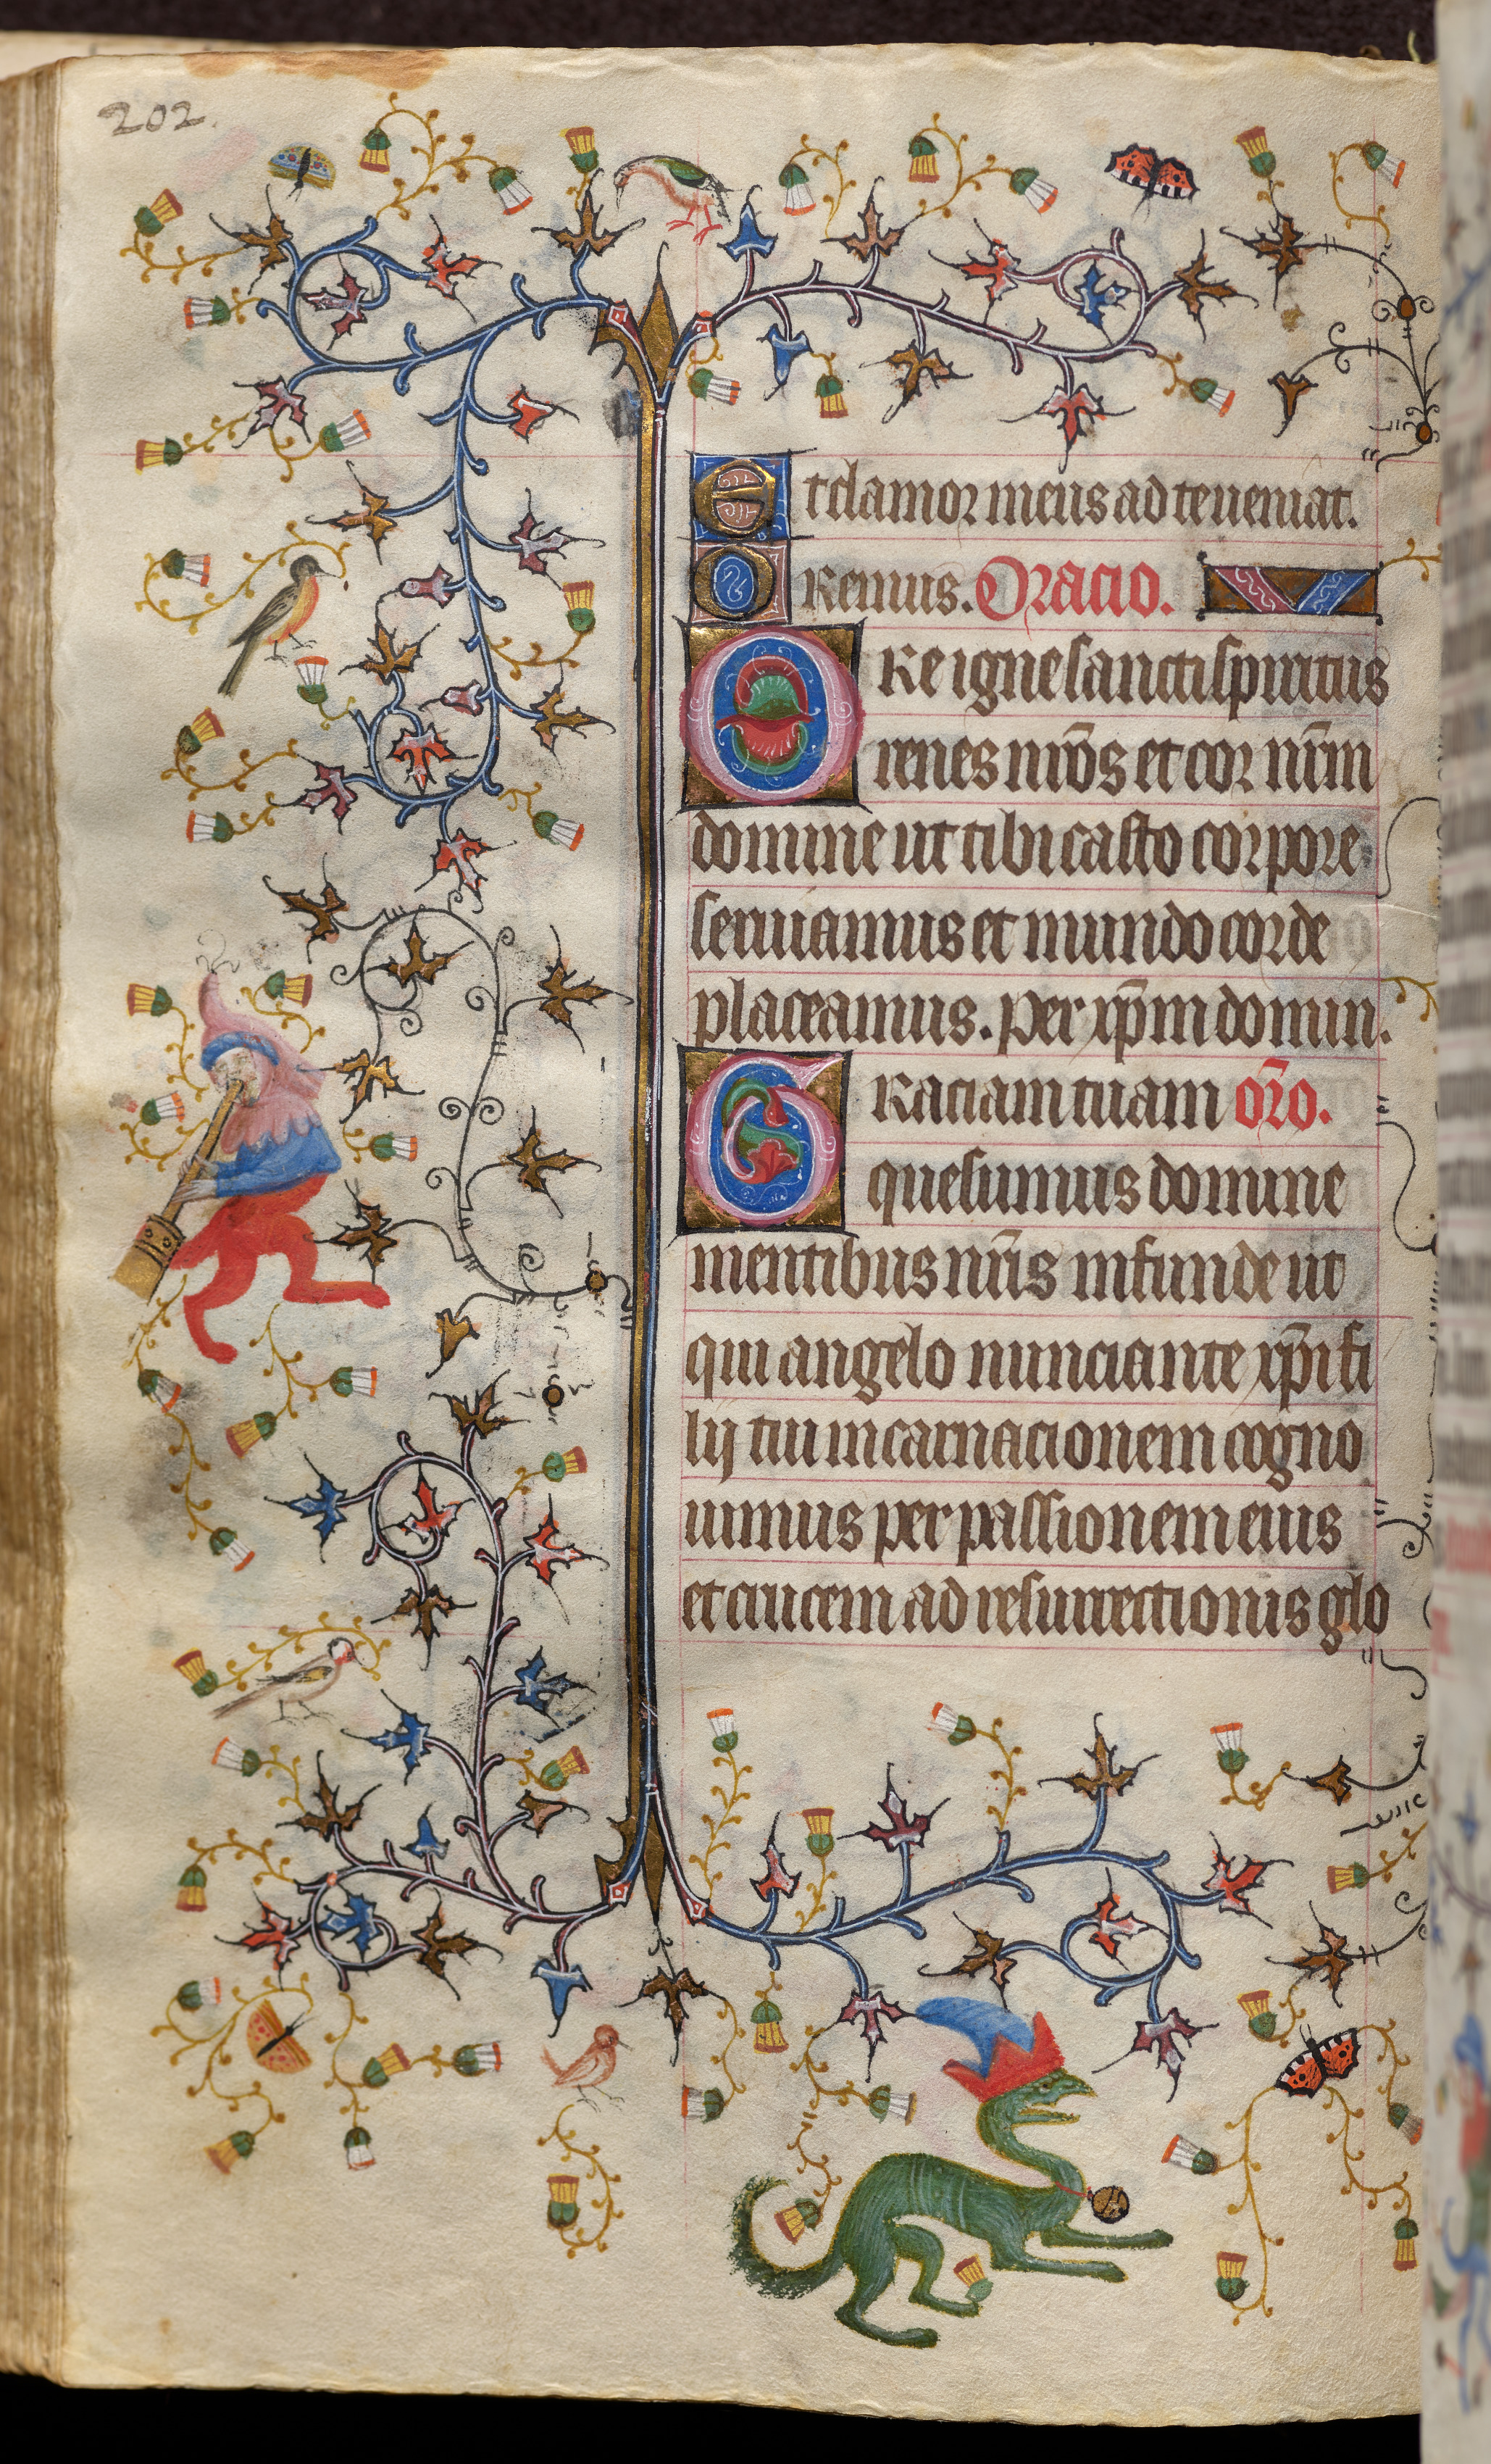 202.
Et clamor meus ad te ueniat.
Oremus. Oracio.
Ure igne sancti spiritus
renes nr̅o̅s et cor nr̅m
domine ut tibi casto corpore
seruiamus et mundo corde
placeamus. Per xp̅m domin.
Graciam tuam or̅o.
quesumus domine
mentibus nr̅is infunde ut
qui angelo nunciante xp̅i fi
lij tui incarnacionem cogno
uimus per passionem eius
et crucem ad resurrectionis glo